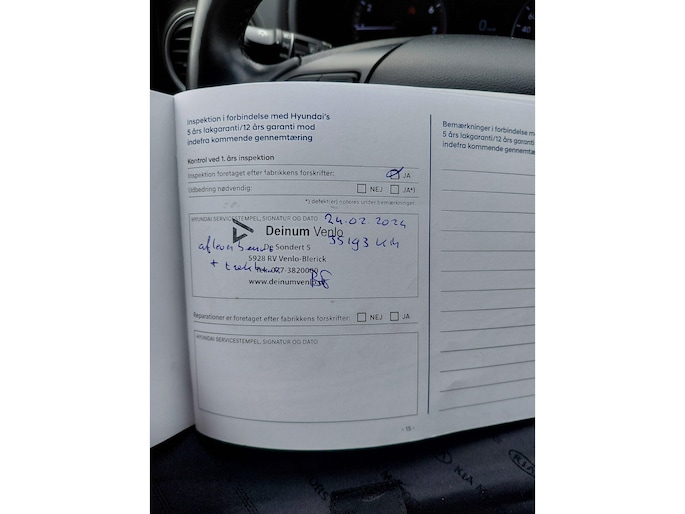 Inspektion i forbindelse med Hyundai's
5 års lakgaranti/12 års garanti mod
indefra kommende gennemtæring
Kontrol ved 1. års inspektion
Inspektion foretaget efter fabrikkens forskrifter: JA
Udbedring nødvendig: NEJ JA*)
*) defekt(er) noteres under bemærkninger.
HYUNDAI SERVICESTEMPEL, SIGNATUR OG DATO 24.02.2024
Deinum Venlo
35193 KM
De Sondert 5
5928 RV Venlo-Blerick
+
www.deinumvenlo
Reparationer er foretaget efter fabrikkens forskrifter: NEJ JA
HYUNDAI SERVICESTEMPEL, SIGNATUR OG DATO
- 15 -
Bemærkninger i forbindelse
5 års lakgaranti/12 års
indefra kommende
KIA